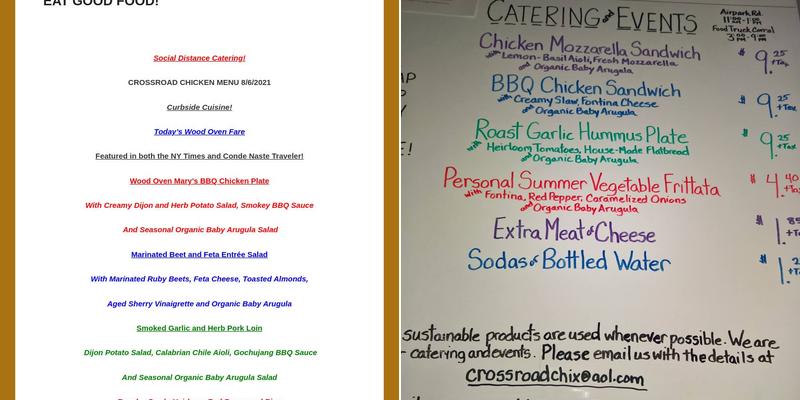 EAT GOOD FOOD!
Social Distance Catering!
CROSSROAD CHICKEN MENU 8/6/2021
Curbside Cuisine!
Today's Wood Oven Fare
Featured in both the NY Times and Conde Naste Traveler!
Wood Oven Mary's BBQ Chicken Plate
With Creamy Dijon and Herb Potato Salad, Smokey BBQ Sauce
And Seasonal Organic Baby Arugula Salad
Marinated Beet and Feta Entrée Salad
With Marinated Ruby Beets, Feta Cheese, Toasted Almonds,
Aged Sherry Vinaigrette and Organic Baby Arugula
Smoked Garlic and Herb Pork Loin
Dijon Potato Salad, Calabrian Chile Aioli, Gochujang BBQ Sauce
And Seasonal Organic Baby Arugula Salad
CATERING and EVENTS
Airpark Rd.
11:00-1:00 PM
Food Truck Corral
3:00 PM-9:00 PM
Chicken Mozzarella Sandwich $9.25 +Tax
with Lemon-Basil Aioli, Fresh Mozzarella
and Organic Baby Arugula
BBQ Chicken Sandwich $9.25 +Tax
with Creamy Slaw, Fontina Cheese
and Organic Baby Arugula
Roast Garlic Hummus Plate $9.25 +Tax
with Heirloom Tomatoes, House-Made Flatbread
and Organic Baby Arugula
E!
Personal Summer Vegetable Frittata $4.40
with Fontina, Red Pepper, Caramelized Onions
and Organic Baby Arugula
Extra Meat & Cheese $1.
Sodas & Bottled Water $1.
sustainable products are used whenever possible. We are
- catering and events. Please email us with the details at
crossroadchix@aol.com